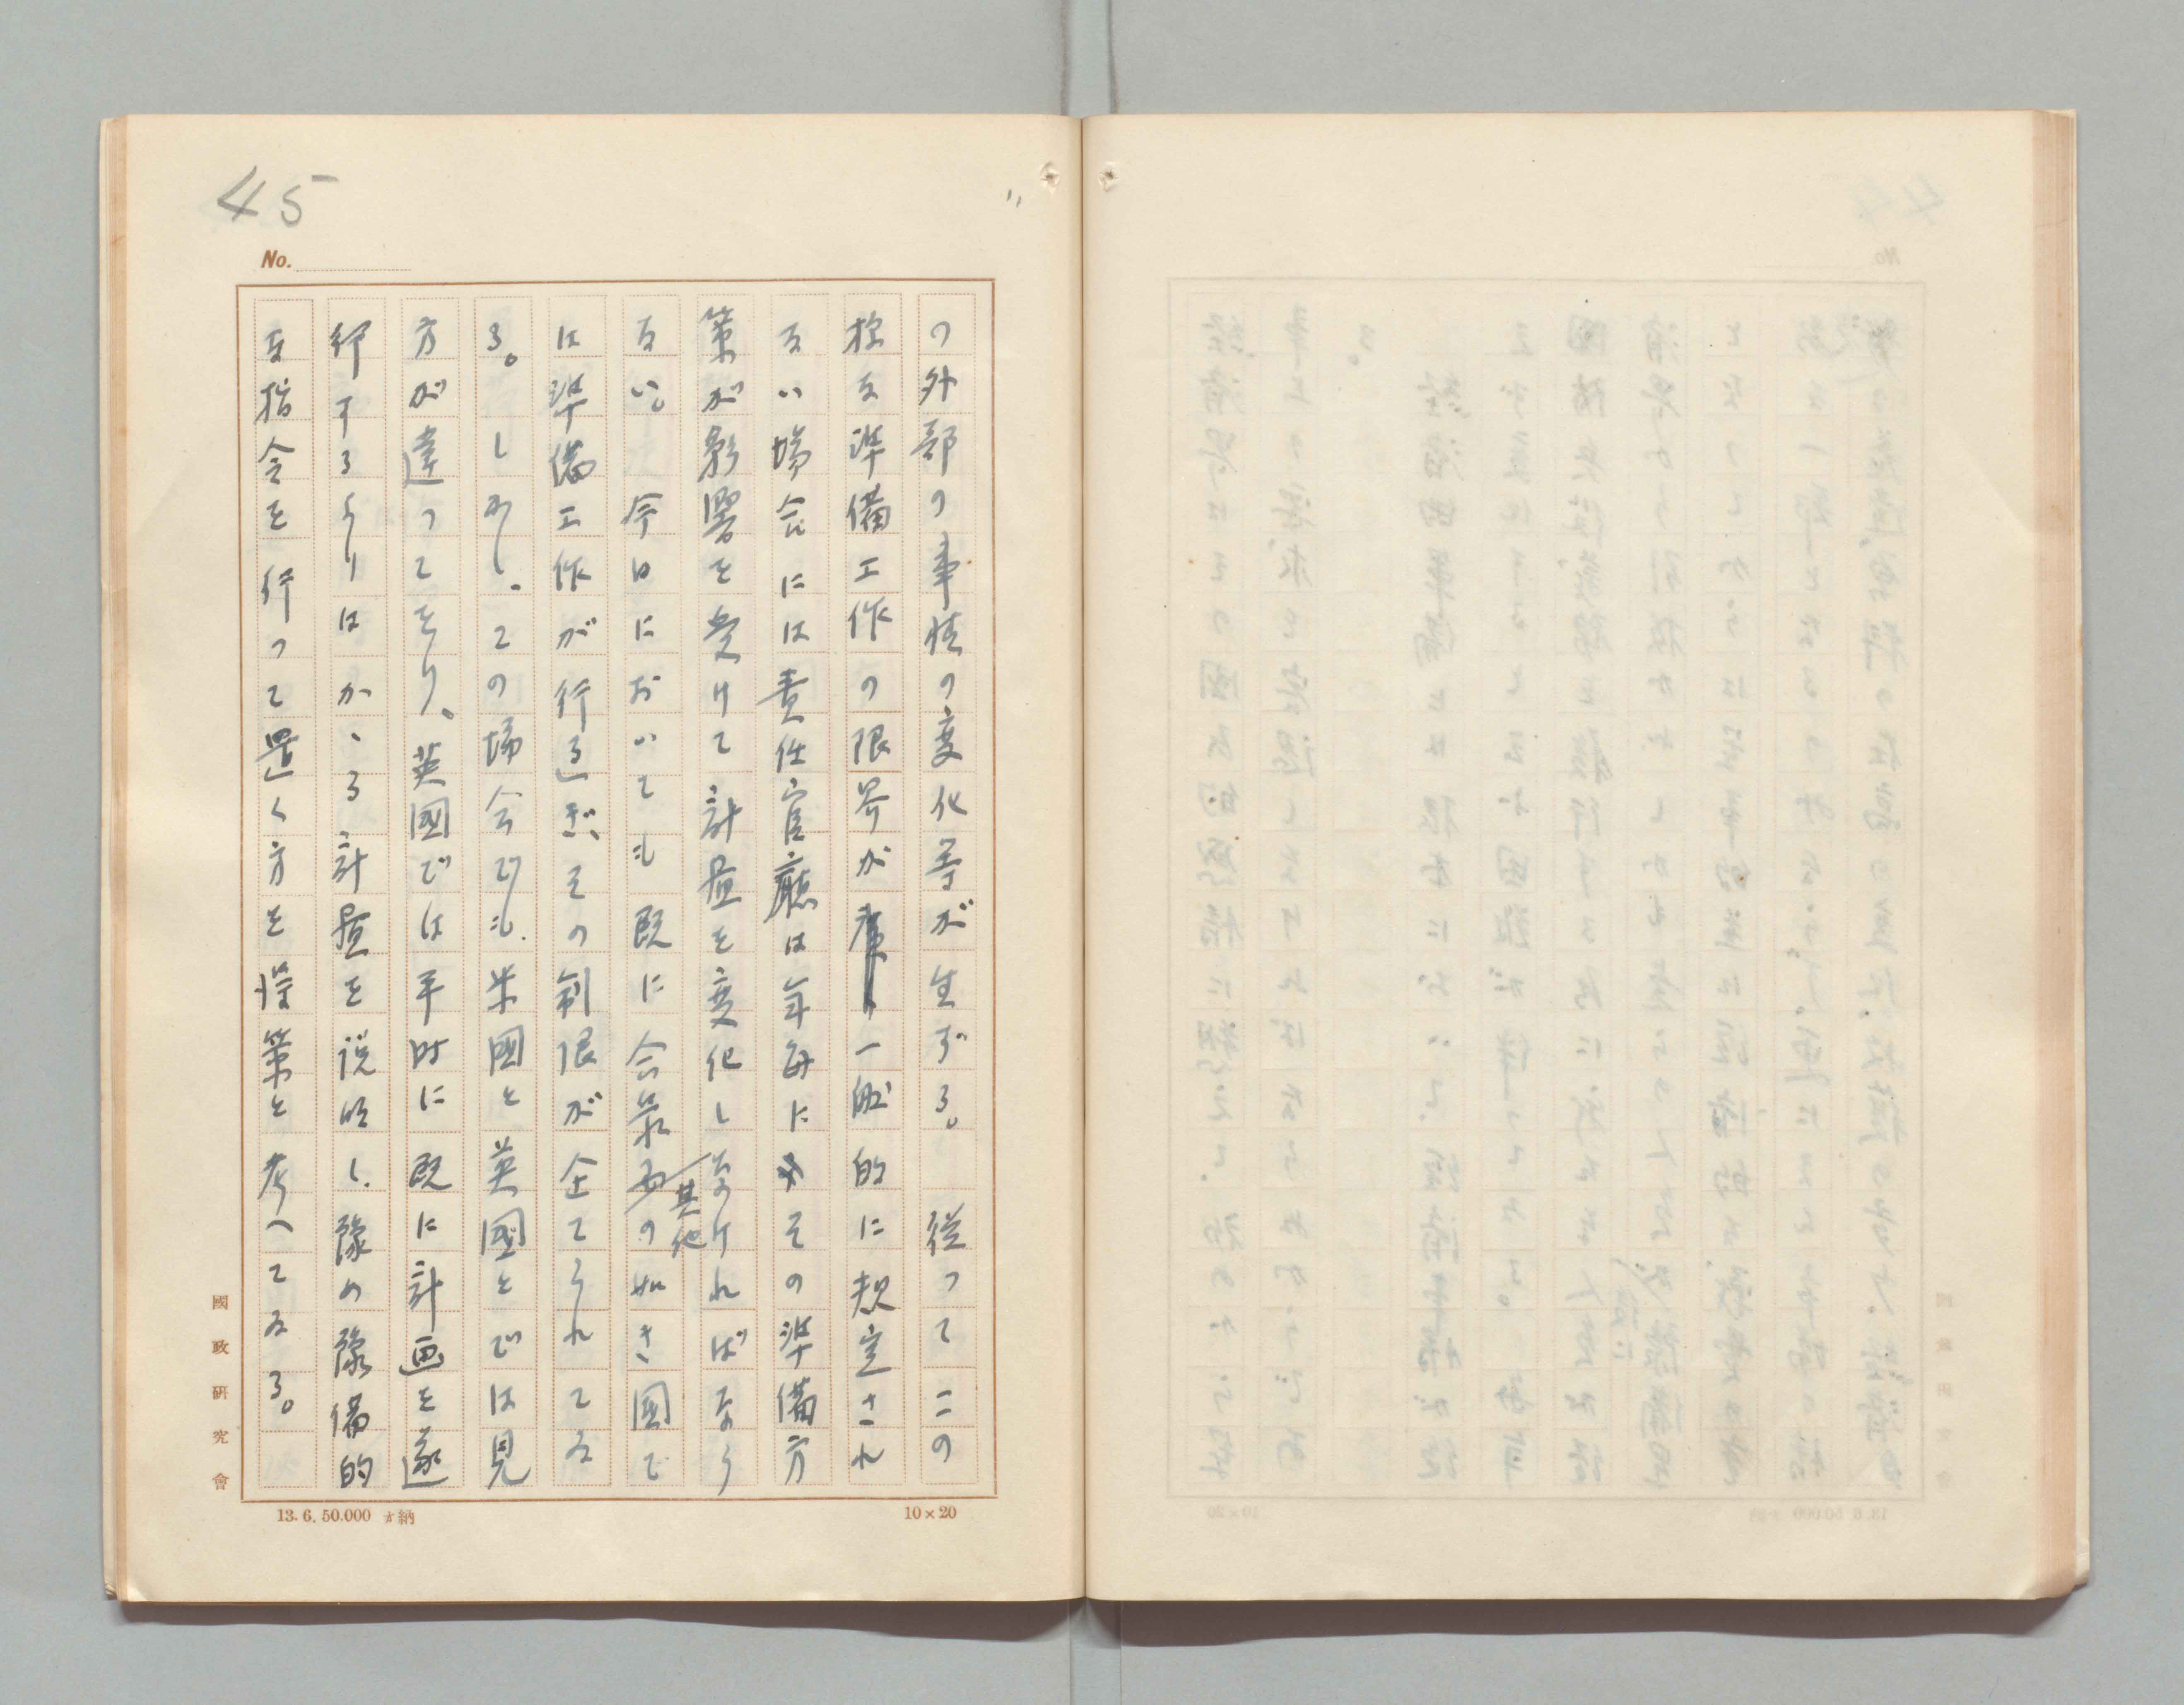 45
No.
の外部の事情の変化等が生ずる。従つてこの
様な準備工作の限界が一般的に規定され
ない場合には責任官廳は年毎にその準備方
策が影響を受けて計畫を変化しなければなら
ない。今日においても既に合衆其他の如き國で
は準備工作が行る、その制限が企てられてゐ
る。しかし、この場合でも、米國と英國とでは見
方が違つてをり、英國では平時に既に計画を遂
行するよりはかゝる計畫を説明し、豫め豫備的
な指令を行つて置く方を得策と考へてゐる。
國政研究會
13. 6. 50.000 納
10×20